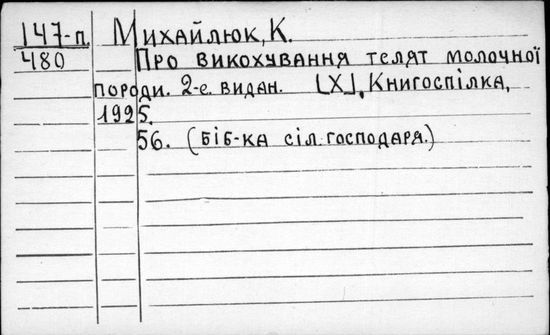 147-п. Михайлюк, К.
480 Про викохування телят молочної
породи. 2-е видан. [Х], Книгоспілка,
1925.
56. (Біб-ка сіл. господаря.)